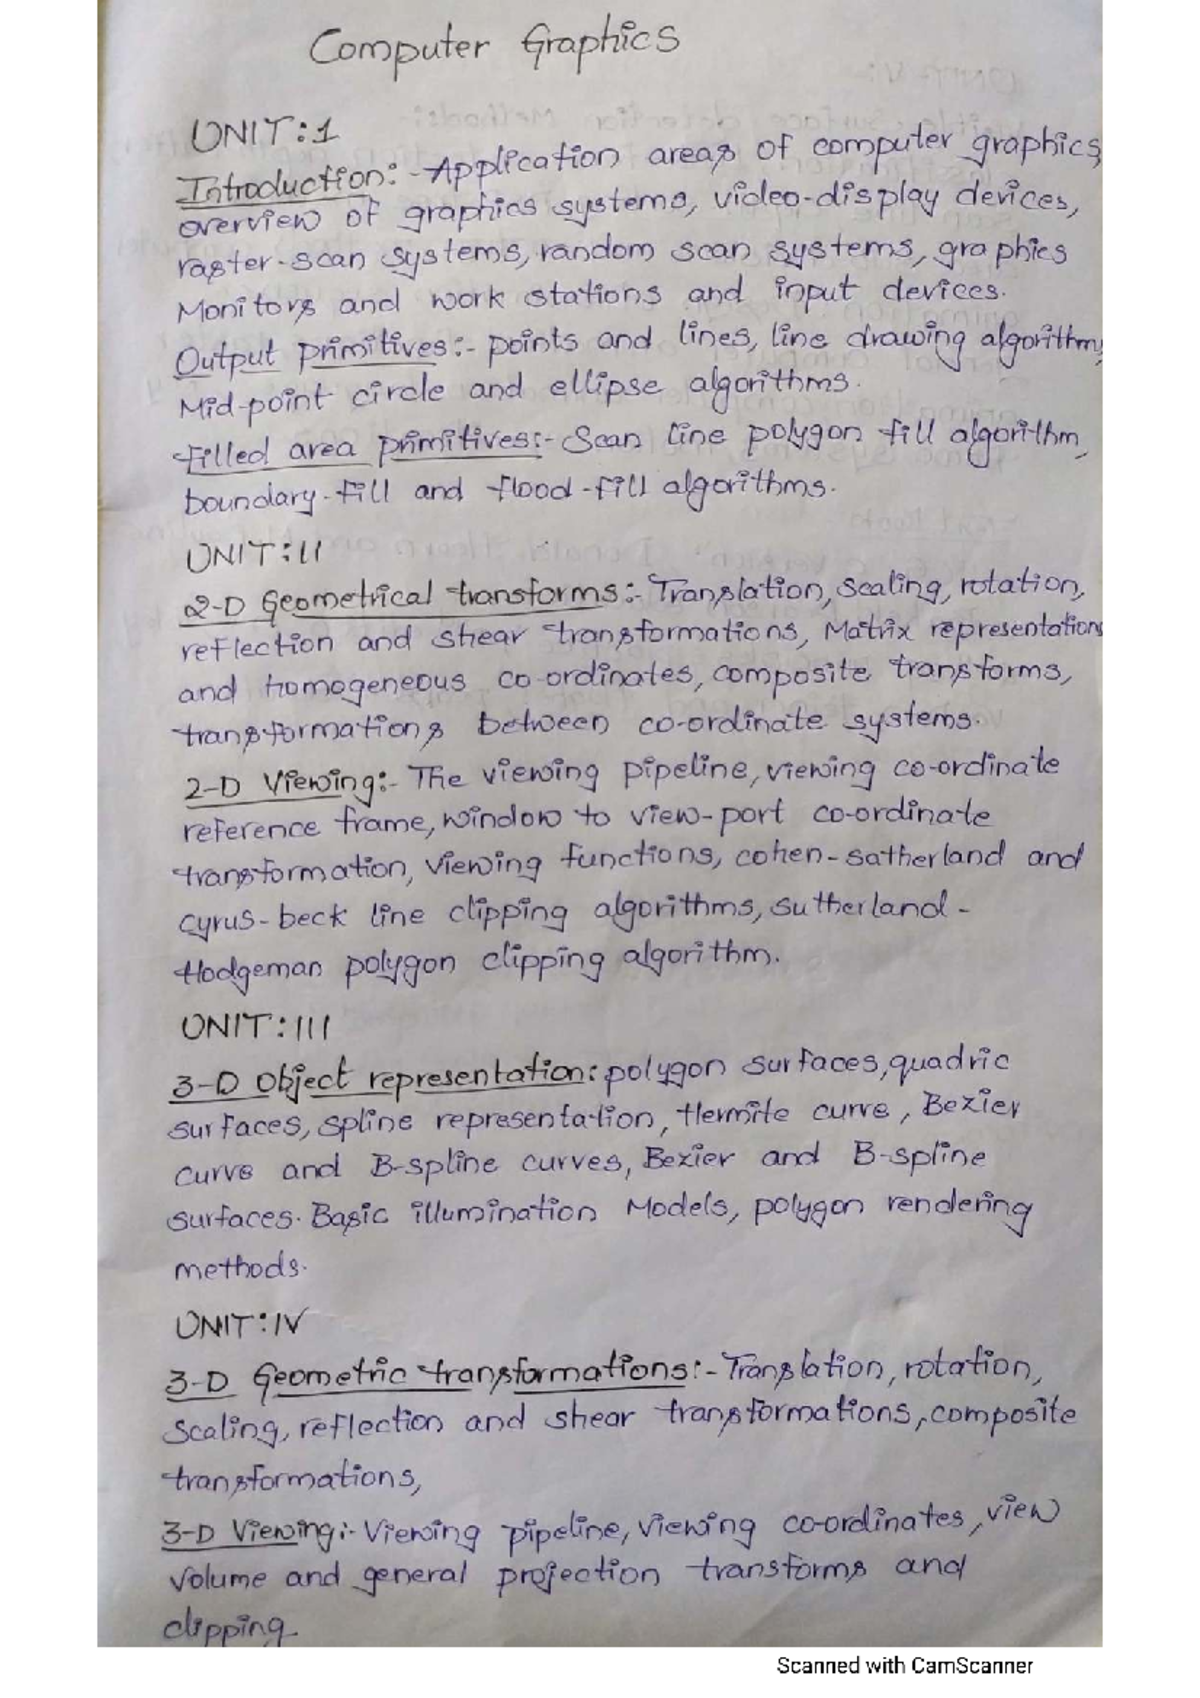 Computer Graphics
UNIT:1
Introduction:- Application areas of computer graphics,
overview of graphics systems, video-display devices,
raster-scan systems, random scan systems, graphics
Monitors and work stations and input devices.
Output primitives:- points and lines, line drawing algorithms,
Mid-point circle and ellipse algorithms.
Filled area primitives:- Scan line polygon fill algorithm,
boundary-fill and flood-fill algorithms.
UNIT:II
2-D Geometrical transforms:- Translation, scaling, rotation,
reflection and shear transformations, Matrix representations
and homogeneous co-ordinates, composite transforms,
transformations between co-ordinate systems.
2-D Viewing:- The viewing pipeline, viewing co-ordinate
reference frame, window to view-port co-ordinate
transformation, viewing functions, cohen-satherland and
cyrus-beck line clipping algorithms, sutherland-
Hodgeman polygon clipping algorithm.
UNIT:III
3-D Object representation: polygon surfaces, quadric
surfaces, spline representation, Hermite curve, Bezier
curve and B-spline curves, Bezier and B-spline
surfaces. Basic illumination Models, polygon rendering
methods.
UNIT:IV
3-D Geometric transformations:- Translation, rotation,
scaling, reflection and shear transformations, composite
transformations,
3-D Viewing:- Viewing pipeline, viewing co-ordinates, view
volume and general projection transforms and
clipping.
Scanned with CamScanner